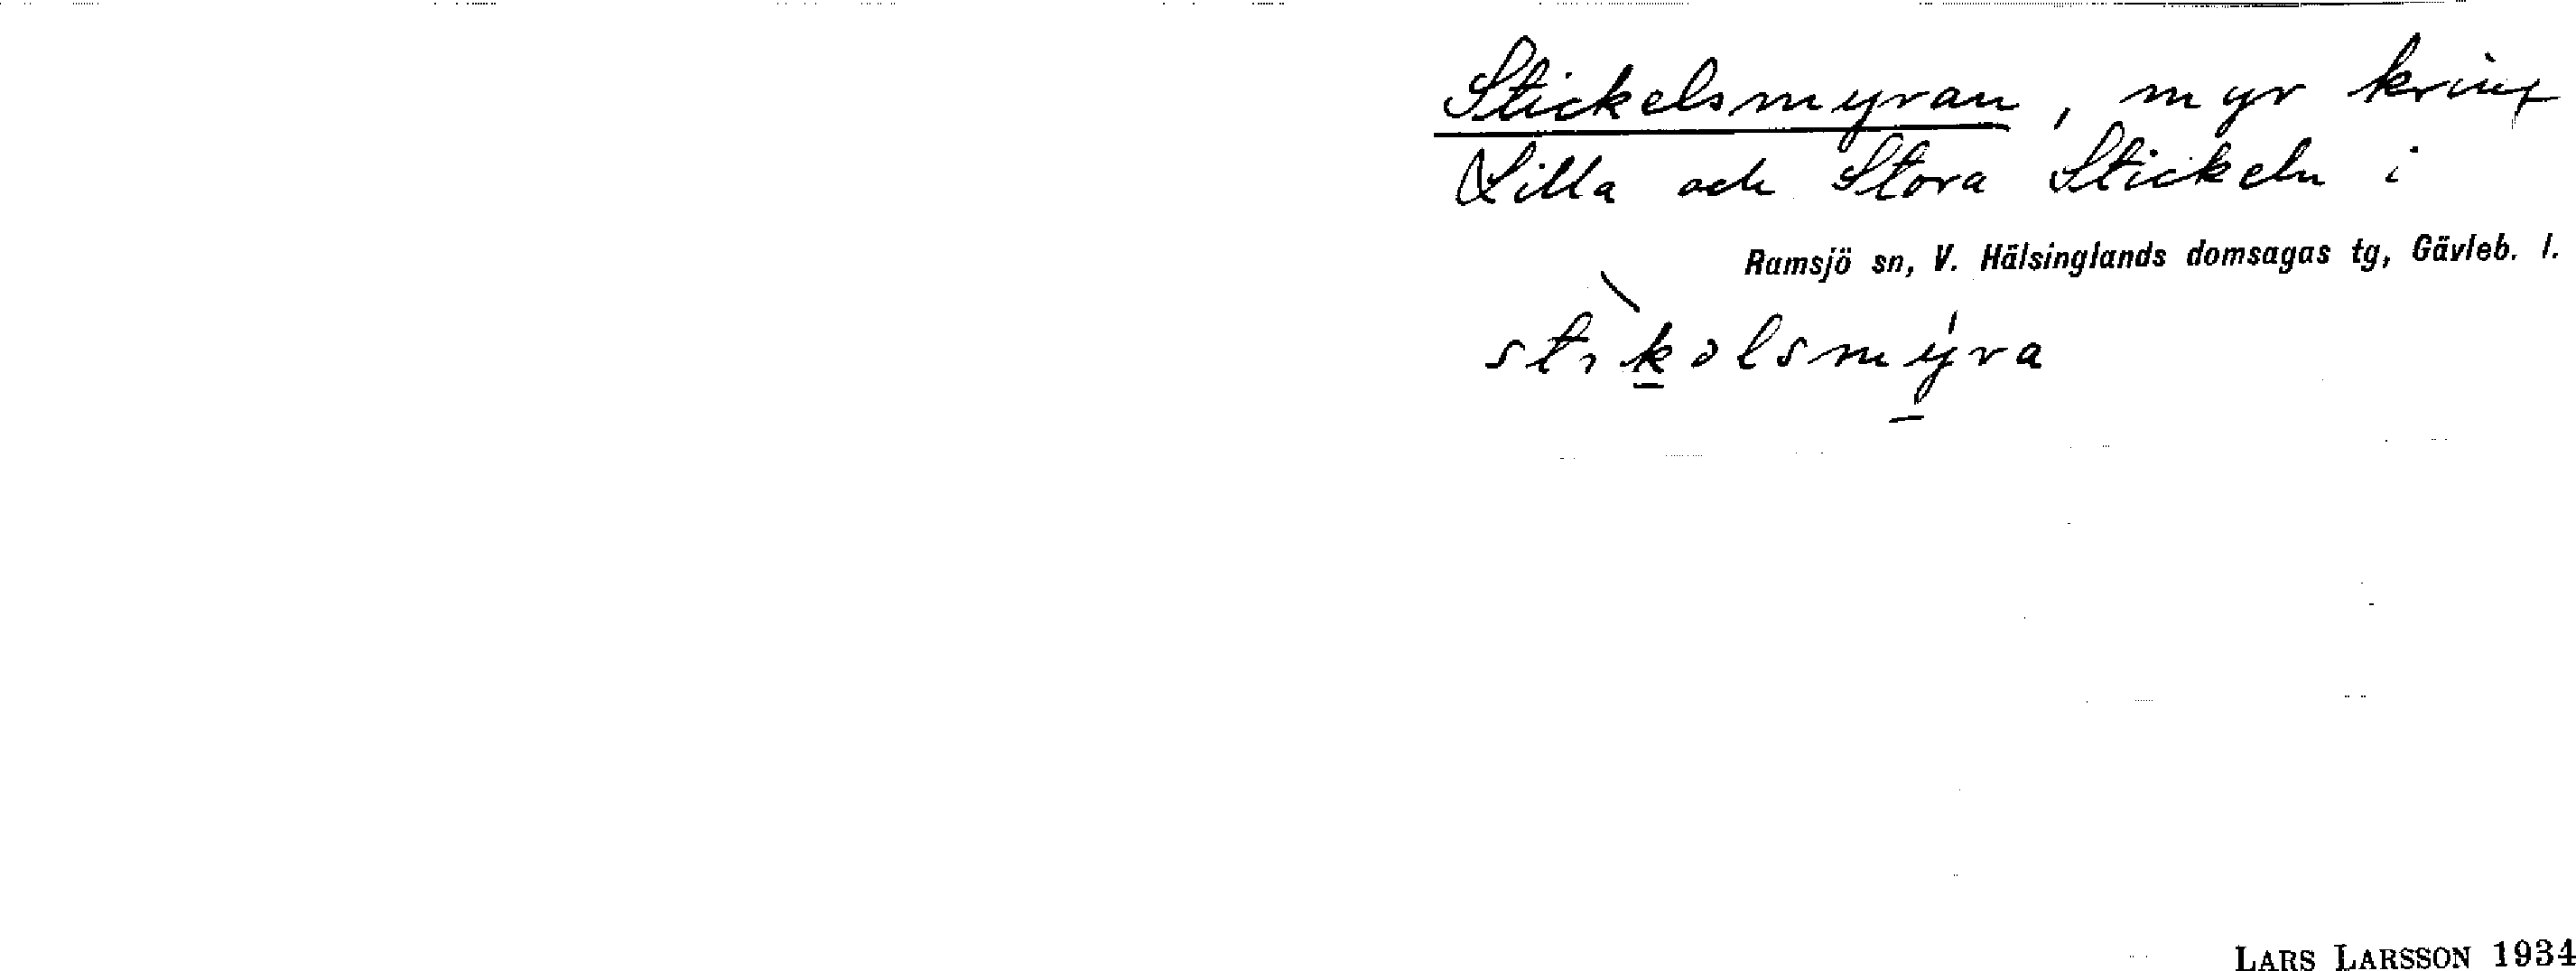 Stickelsmyran, myr kring
Lilla och Stora Stickeln i
Ramsjö sn, V. Hälsinglands domsagas tg, Gävleb. l.
stikəlsmýra
LARS LARSSON 1934